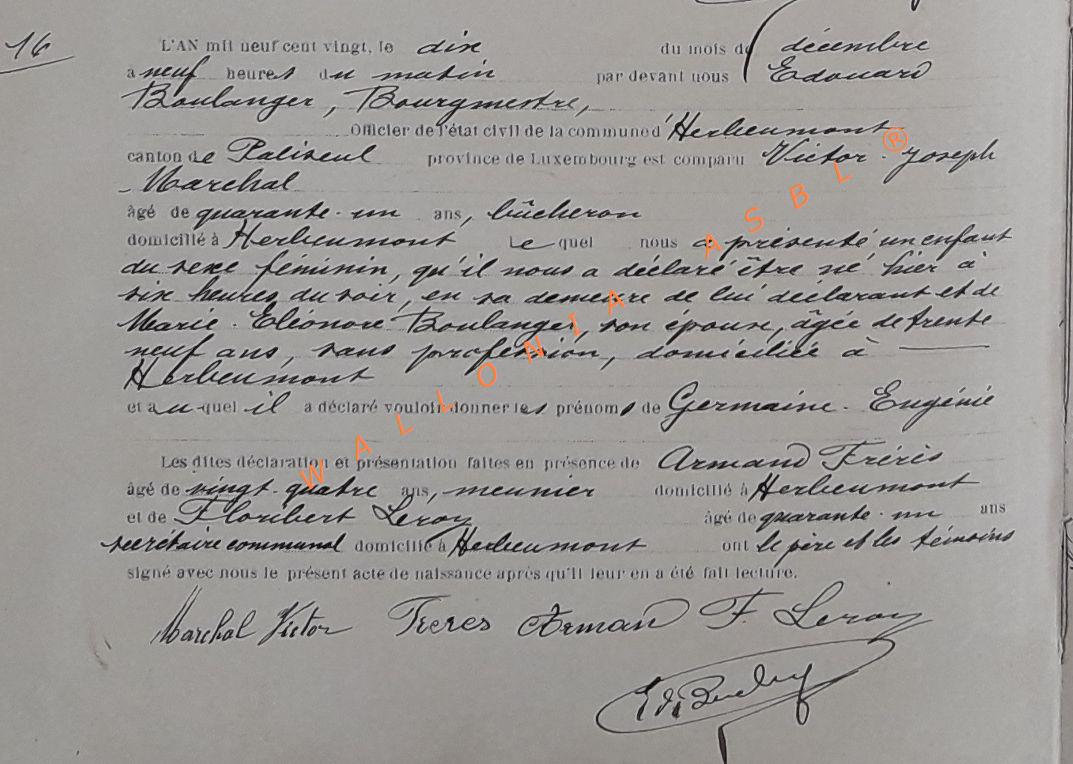 16
L'AN mil neuf cent vingt, le dix du mois de décembre
à neuf heures du matin par devant nous Edouard
Boulanger, Bourgmestre,
Officier de l'état civil de la commune d'Herbeumont
canton de Paliseul province de Luxembourg est comparu Victor-Joseph
Marchal
âgé de quarante-un ans, bûcheron
domicilié à Herbeumont Lequel nous a présenté un enfant
du sexe féminin, qu'il nous a déclaré être né hier à
six heures du soir, en sa demeure de lui déclarant et de
Marie-Eléonore Boulanger, son épouse, âgée de trente
neuf ans, sans profession, domiciliée à
Herbeumont
et auquel il a déclaré vouloir donner les prénoms de Germaine-Eugénie
Les dites déclaration et présentation faites en présence de Armand Frérès
âgé de vingt-quatre ans, meunier domicilié à Herbeumont
et de Floribert Leroy âgé de quarante-un ans
secrétaire communal domicilié à Herbeumont ont le père et les témoins
signé avec nous le présent acte de naissance après qu'il leur en a été fait lecture.
Marchal Victor Freres Arman F. Leroy
WALLONIA ASBL ®